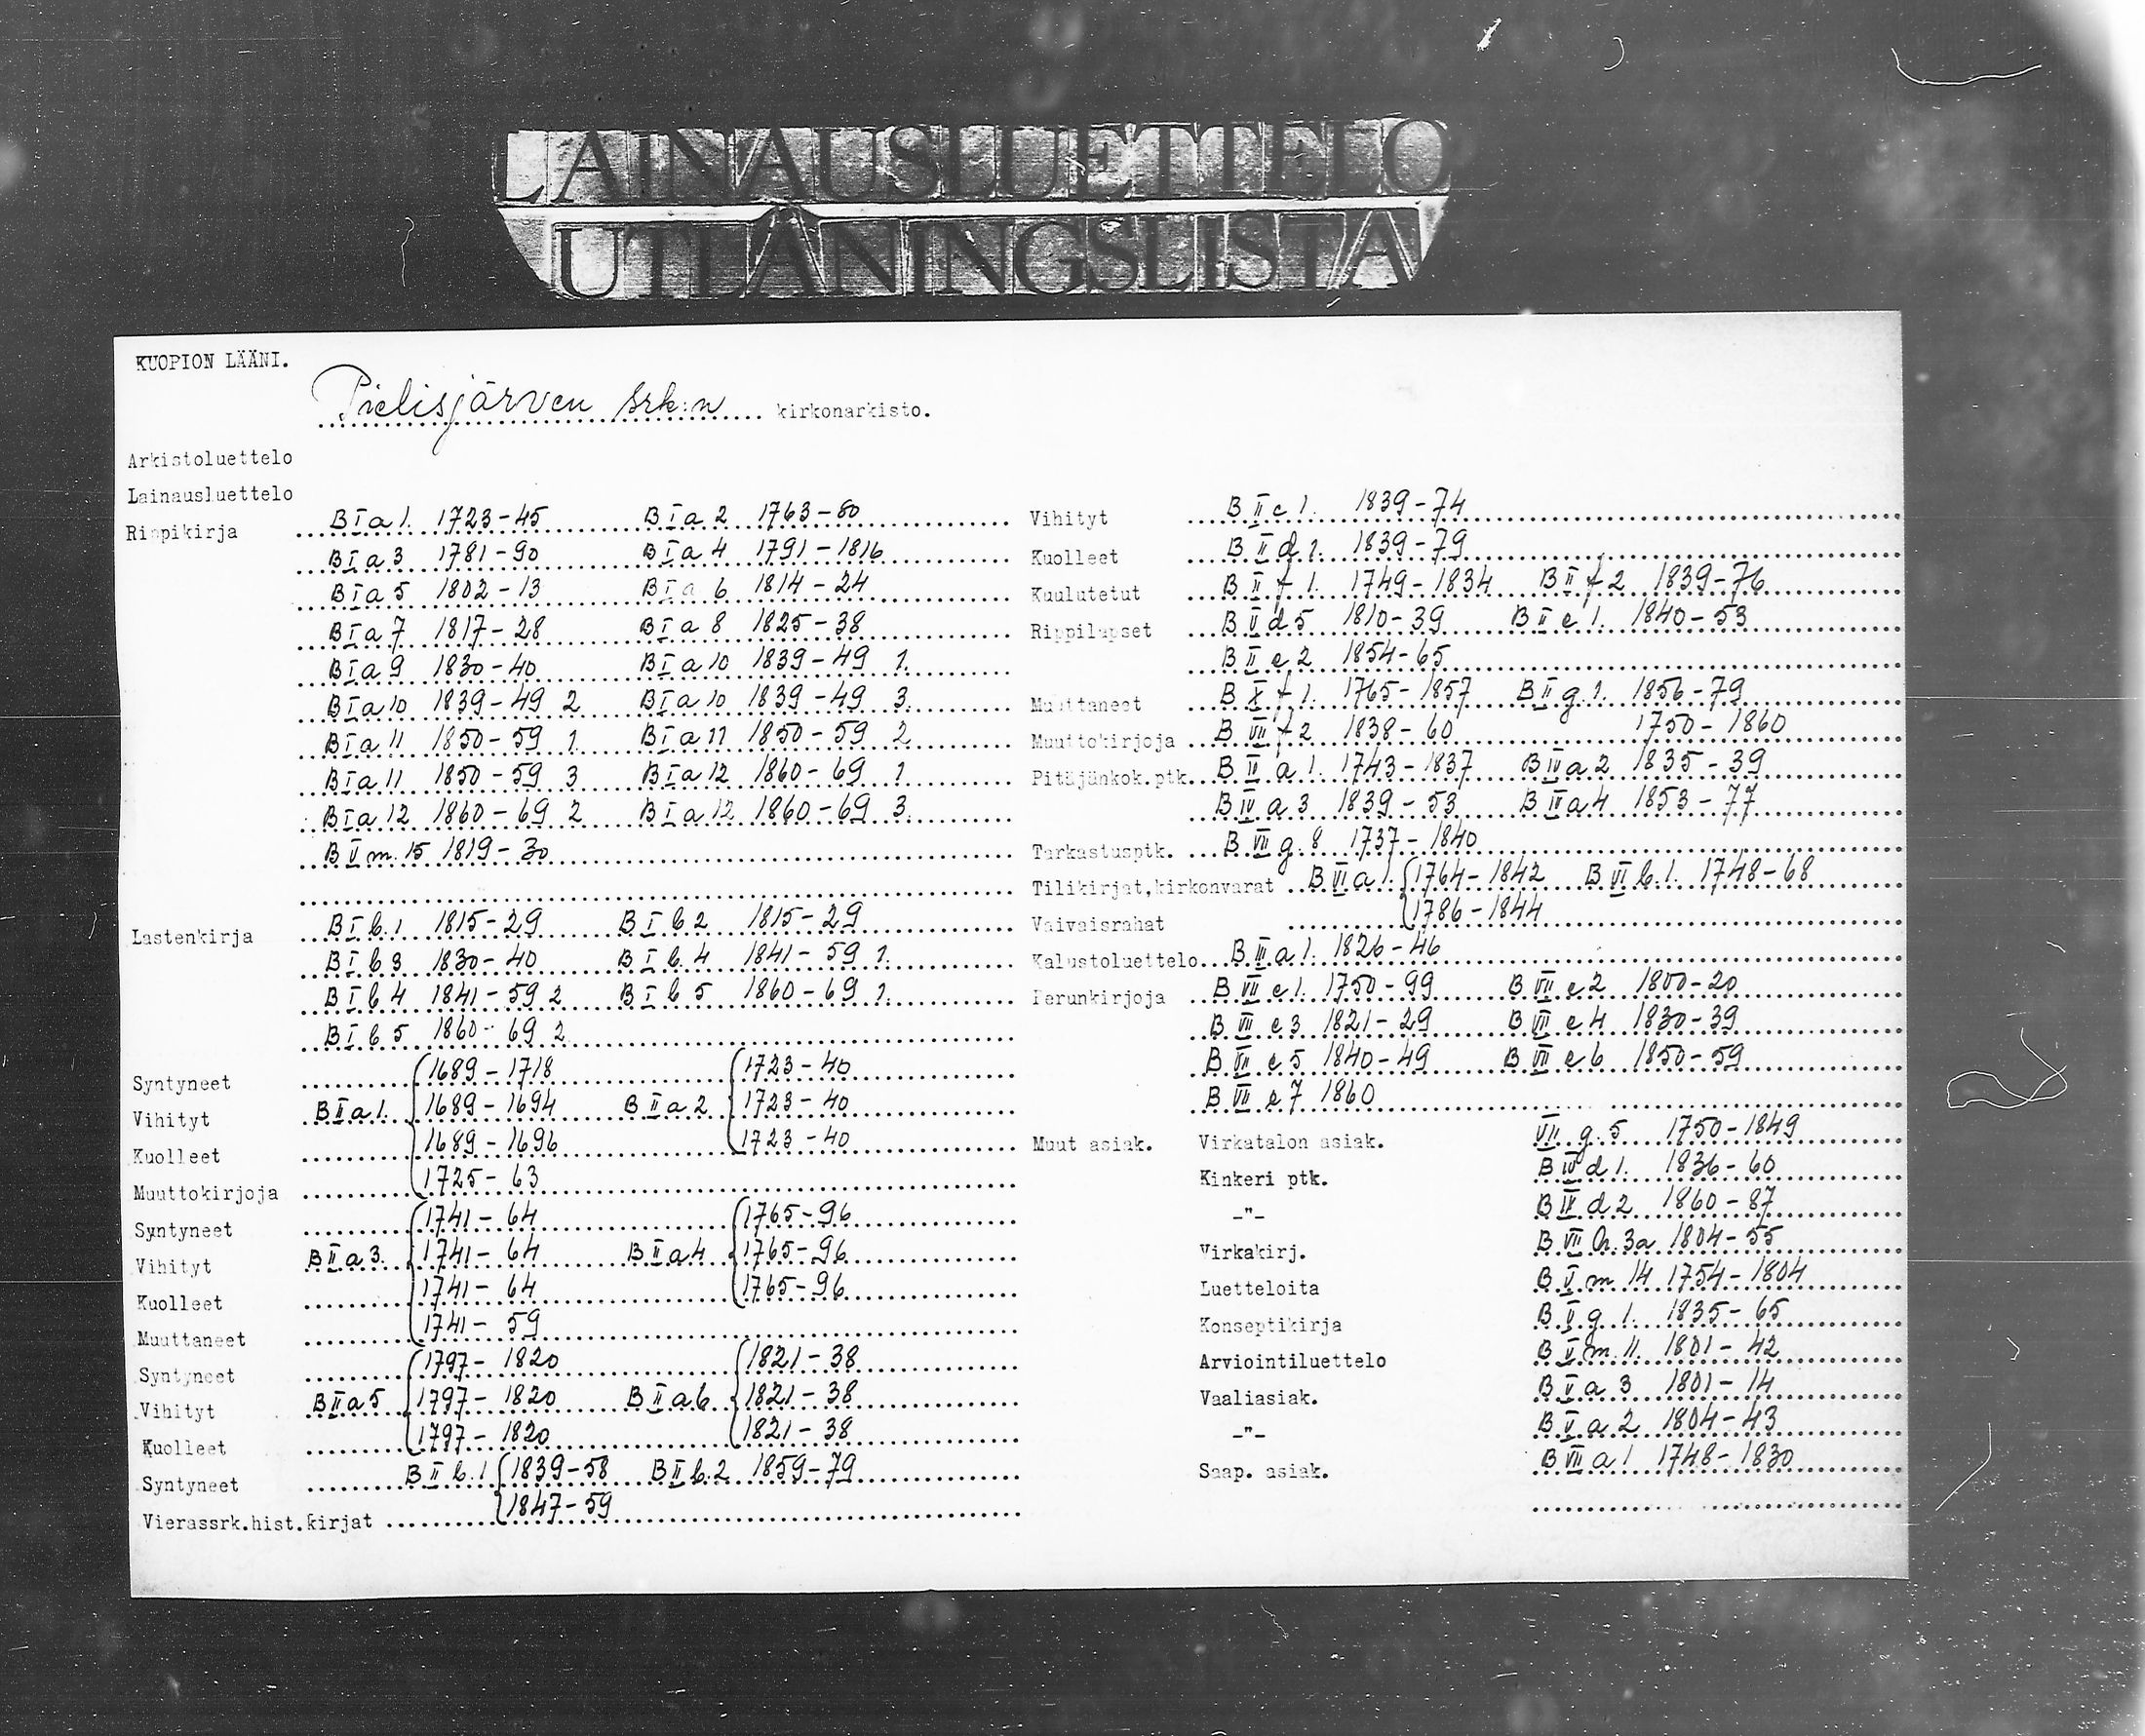 LAINAUSLUETTELO
UTLÅNINGSLISTA
KUOPION LÄÄNI.
Pielisjärven srk:n kirkonarkisto.
Arkistoluettelo
Lainausluettelo
Rippikirja B I a 1. 1723-45 B I a 2 1763-80
B I a 3 1781-90 B I a 4 1791-1816
B I a 5 1802-13 B I a 6 1814-24
B I a 7 1817-28 B I a 8 1825-38
B I a 9 1830-40 B I a 10 1839-49 1.
B I a 10 1839-49 2 B I a 10 1839-49 3.
B I a 11 1850-59 1 B I a 11 1850-59 2
B I a 11 1850-59 3 B I a 12 1860-69 1
B I a 12 1860-69 2 B I a 12 1860-69 3.
B V m. 15 1819-30
Lastenkirja B I b. 1 1815-29 B I b 2 1815-29
B I b 3 1830-40 B I b. 4 1841-59 1.
B I b 4 1841-59 2 B I b 5 1860-69 1.
B I b 5 1860-69 2
Syntyneet 1689-1718 1723-40
Vihityt B II a 1. 1689-1694 B II a 2 1723-40
Kuolleet 1689-1696 1723-40
Muuttokirjoja 1725-63
Syntyneet 1741-64 1765-96
Vihityt B II a 3. 1741-64 B II a 4. 1765-96
Kuolleet 1741-64 1765-96
Muuttaneet 1741-59
Syntyneet 1797-1820 1821-38
Vihityt B II a 5 1797-1820 B II a 6. 1821-38
Kuolleet 1797-1820 1821-38
Syntyneet B II b. 1 1839-58 B II b. 2 1859-79
Vierassrk.hist.kirjat 1847-59
Vihityt B II c 1. 1839-74
Kuolleet B II d 1. 1839-79
Kuulutetut B II f 1. 1749-1834 B II f 2 1839-76
Rippilapset B V d 5 1810-39 B II e 1. 1840-53
B II e 2 1854-65
Muuttaneet f 1. 1765-1857 B II g. 1. 1856-79
Muuttokirjoja B VII f 2 1838-60 1750-1860
Pitäjänkok.ptk. a 1. 1743-1837 B IV a 2 1835-39
B IV a 3 1839-53 B IV a 4 1853-77
Tarkastusptk. B VII g. 8 1737-1840
Tilikirjat,kirkonvarat B VI a 1. 1764-1842 B VI b. 1. 1748-68
Vaivaisrahat 1786-1844
Kalustoluettelo B III a 1. 1826-46
Perunkirjoja B VII e 1. 1750-99 B VII e 2 1800-20
B VII e 3 1821-29 B VII e 4 1830-39
B VII e 5 1840-49 B VII e 6 1850-59
B VII e 7 1860
Muut asiak. Virkatalon asiak. VII g. 5 1750-1849
Kinkeri ptk. B IV d 1. 1836-60
-"- B IV d 2 1860-87
Virkakirj. B VII h. 3a 1804-55
Luetteloita B V m 14 1754-1804
Konseptikirja B V g 1. 1835-65
Arviointiluettelo B V m. 11. 1801-42
Vaaliasiak. B V a 3 1801-14
-"- B V a 2 1804-43
Saap. asiak. B VII a 1 1748-1830